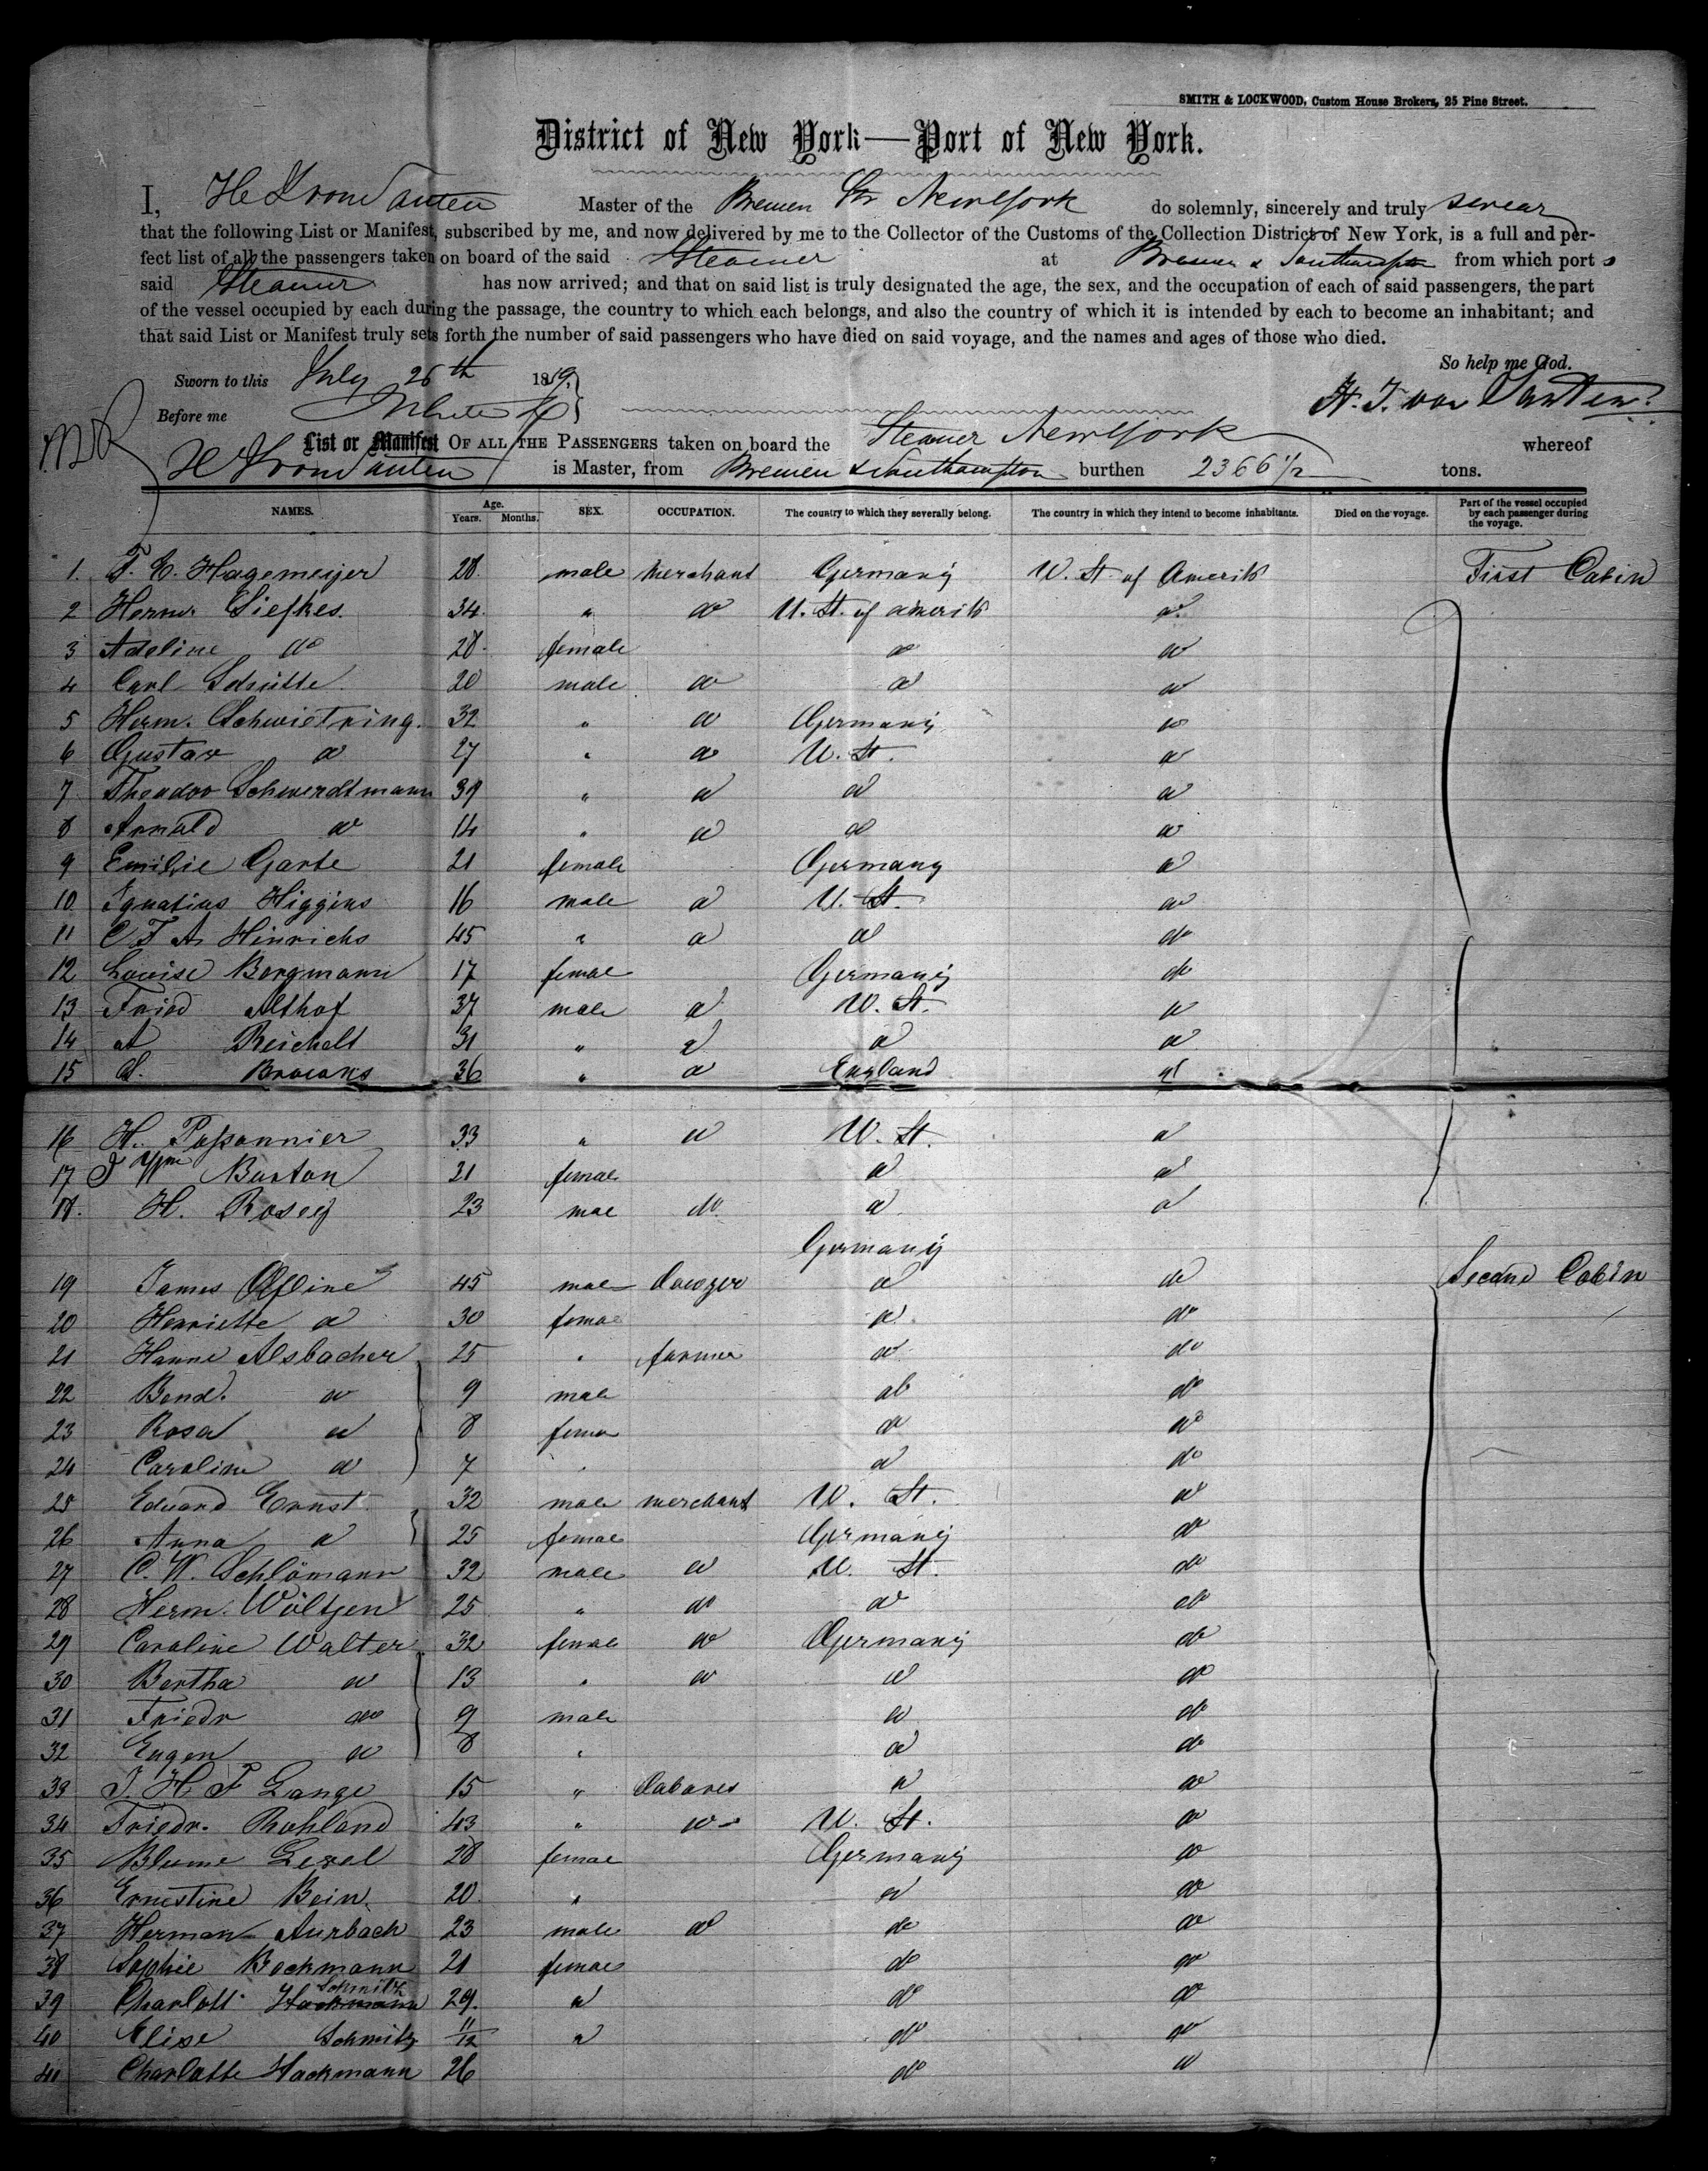 SMITH & LOCKWOOD, Custom House Brokers, 25 Pine Street.
District of New York—Port of New York.
I, Master of the Bremen Str New York do solemnly, sincerely and truly swear
that the following List or Manifest, subscribed by me, and now delivered by me to the Collector of the Customs of the Collection District of New York, is a full and per-
fect list of all the passengers taken on board of the said Steamer at Bremen & Southampton from which port s
said Steamer has now arrived; and that on said list is truly designated the age, the sex, and the occupation of each of said passengers, the part
of the vessel occupied by each during the passage, the country to which each belongs, and also the country of which it is intended by each to become an inhabitant; and
that said List or Manifest truly sets forth the number of said passengers who have died on said voyage, and the names and ages of those who died.
So help me God.
Sworn to this July 26th 18
H. J. von Santen
Before me
List or Manifest OF ALL THE PASSENGERS taken on board the Steamer New York whereof
is Master, from Bremen & Southampton burthen 2366 1/2 tons.
NAMES. Age. Years. Months. SEX. OCCUPATION. The country to which they severally belong. The country in which they intend to become inhabitants. Died on the voyage. Part of the vessel occupied by each passenger during the voyage.
1. F. E. Hagemeijer 28. male merchant Germany U. St. of Amerik First Cabin
2 Herm. Siefkes. 34. " do U. St. of Amerik do
3 Adeline do 28. female do do
4 Carl Schütte 20 male do do do
5 Herm. Schwietring. 32 " do Germany do
6 Gustav do 27 " do U. St. do
7 Theodor Schwerdtmann 39 " do do do
8 Arnold do 14 " do do do
9 Emilie Garbe 21 female Germany do
10 Ignatius Higgins 16 male do U. St. do
11 C F A Hinrichs 45 " do do do
12 Louise Borgmann 17 female Germany do
13 Fried Althof 37 male do U. St. do
14 A Reichelt 31 " do do do
15 36 " do England do
16 H. 33 " do U. St. do
17 Burton 21 female do do
18. H. Rosey 23 male do do do
Germany
19 James 45 male do do Second Cabin
20 Henriette do 30 female do do
21 Hanne Alsbacher 25 " farmer do do
22 Bend. do 9 male do do
23 Rosa do 8 female do do
24 Caroline do 7 " do do
25 Eduard Ernst 32 male merchant U. St. do
26 Anna do 25 female Germany do
27 C. W. Schlömann 32 male do U. St. do
28 Herm. Wöltjen 25 " do do do
29 Caroline Walter 32 female do Germany do
30 Bertha do 13 " do do do
31 Friedr do 9 male do do
32 Eugen do 8 " do do
33 J. H. F Lange 15 " do do
34 Friedr. Ruhland 43 " do U. St. do
35 Blume 28 female Germany do
36 Ernestine Bein. 20. " do do
37 Herman Aurbach 23 male do do do
38 Sophie Bockmann 21 female do do
39 Charlott Hackmann Schmitz 29. do do do
40 Elise Schmitz 11/12 do do do
41 Charlotte Hackmann 26 do do